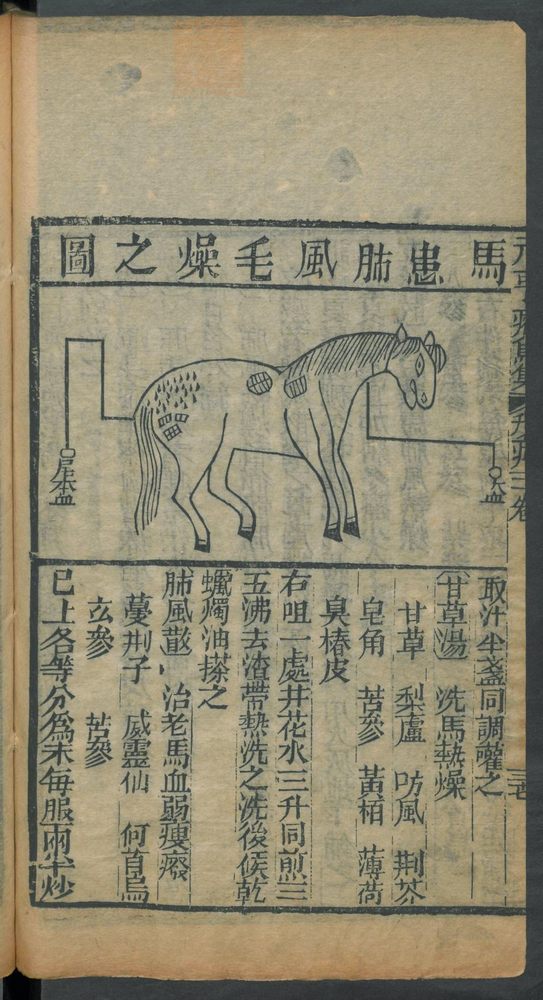 馬患肺風毛燥之圖
尾本血
取汁半盞同調嚾之
甘草湯　洗馬熱燥
甘草　梨蘆　防風　荆芥
皂角　苦參　黃栢　薄荷
臭椿皮
右咀一處井花水三升同煎三
五沸去渣帶熱洗之洗後候乾
蠟燭油搽之
肺風散　治老馬血弱瘦瘢
蔓荆子　威靈仙　何首烏
玄參　苦參
已上各等分為末每服兩半炒